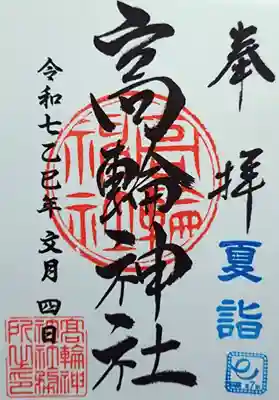 奉拝
夏詣
高輪神社
令和七乙巳年 文月 四日
高輪神社
髙輪神社務所之印